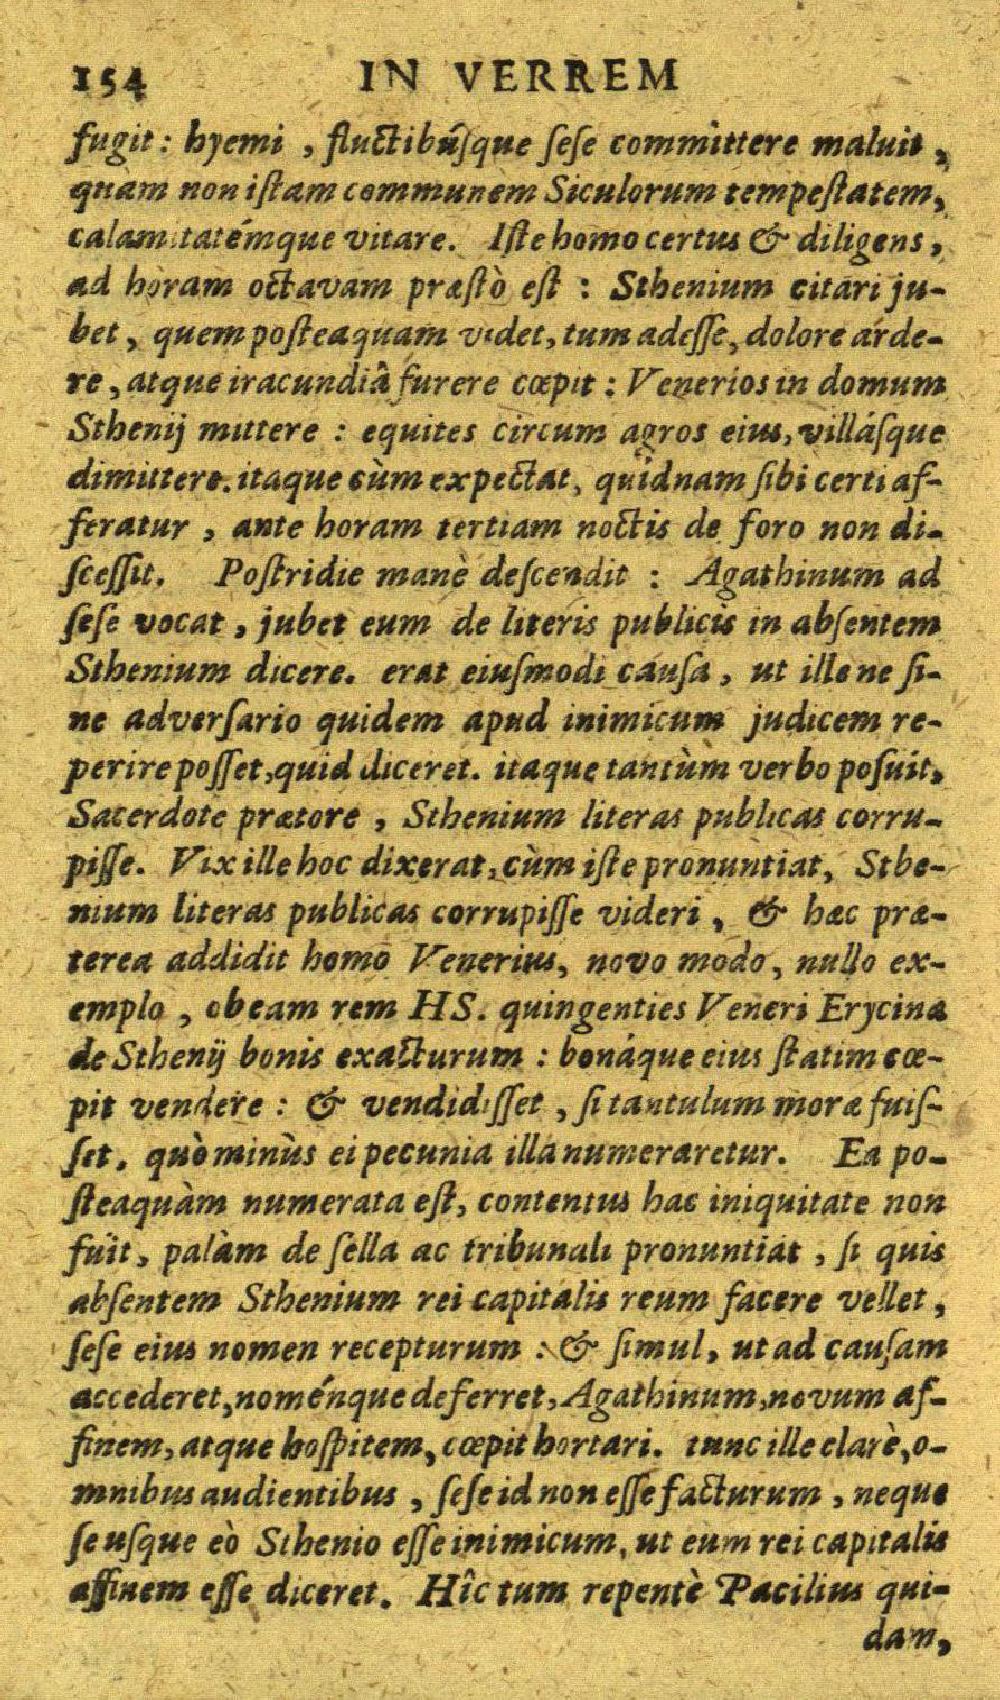 154 IN VERREM
fugit: hyemi , fluctibúſque ſeſe committere maluit ,
quàm non iſtam communem Siculorum tempeſtatem,
calamitatémque vitare. Iſte homo certus & diligens,
ad horam octavam præſtò eſt : Sthenium citari ju-
bet , quem poſteaquam videt, tum adeſſe, dolore arde-
re , atque iracundiâ furere cœpit : Venerios in domum
Sthenij mittere : equites circum agros eius, villáſque
dimittere. itaque cùm expectat, quidnam ſibi certi af-
feratur , ante horam tertiam noctis de foro non di-
ſceſſit. Poſtridie manè deſcendit : Agathinum ad
ſeſe vocat , jubet eum de literis publicis in abſentem
Sthenium dicere. erat eiuſmodi cauſa , ut ille ne ſi-
ne adverſario quidem apud inimicum judicem re-
perire poſſet, quid diceret. itaque tantùm verbo poſuit,
Sacerdote prætore , Sthenium literas publicas corru-
piſſe. Vix ille hoc dixerat, cùm iſte pronuntiat, Sthe-
nium literas publicas corrupiſſe videri , & hæc præ-
terea addidit homo Venerius, novo modo, nullo ex-
emplo , ob eam rem HS. quingenties Veneri Erycinæ
de Sthenij bonis exacturum : bonáque eius ſtatim cœ-
pit vendere : & vendidiſſet , ſi tantulum moræ fuiſ-
ſet. quò minùs ei pecunia illa numeraretur. Ea po-
ſteaquàm numerata eſt, contentus hac iniquitate non
fuit, palàm de ſella ac tribunali pronuntiat , ſi quis
abſentem Sthenium rei capitalis reum facere vellet ,
ſeſe eius nomen recepturum : & ſimul, ut ad cauſam
accederet, noménque deferret, Agathinum, novum af-
finem, atque hoſpitem, cœpit hortari. tunc ille clarè, o-
mnibus audientibus , ſeſe id non eſſe facturum , neque
ſe uſque eò Sthenio eſſe inimicum, ut eum rei capitalis
affinem eſſe diceret. Hîc tum repentè Pacilius qui-
dam,